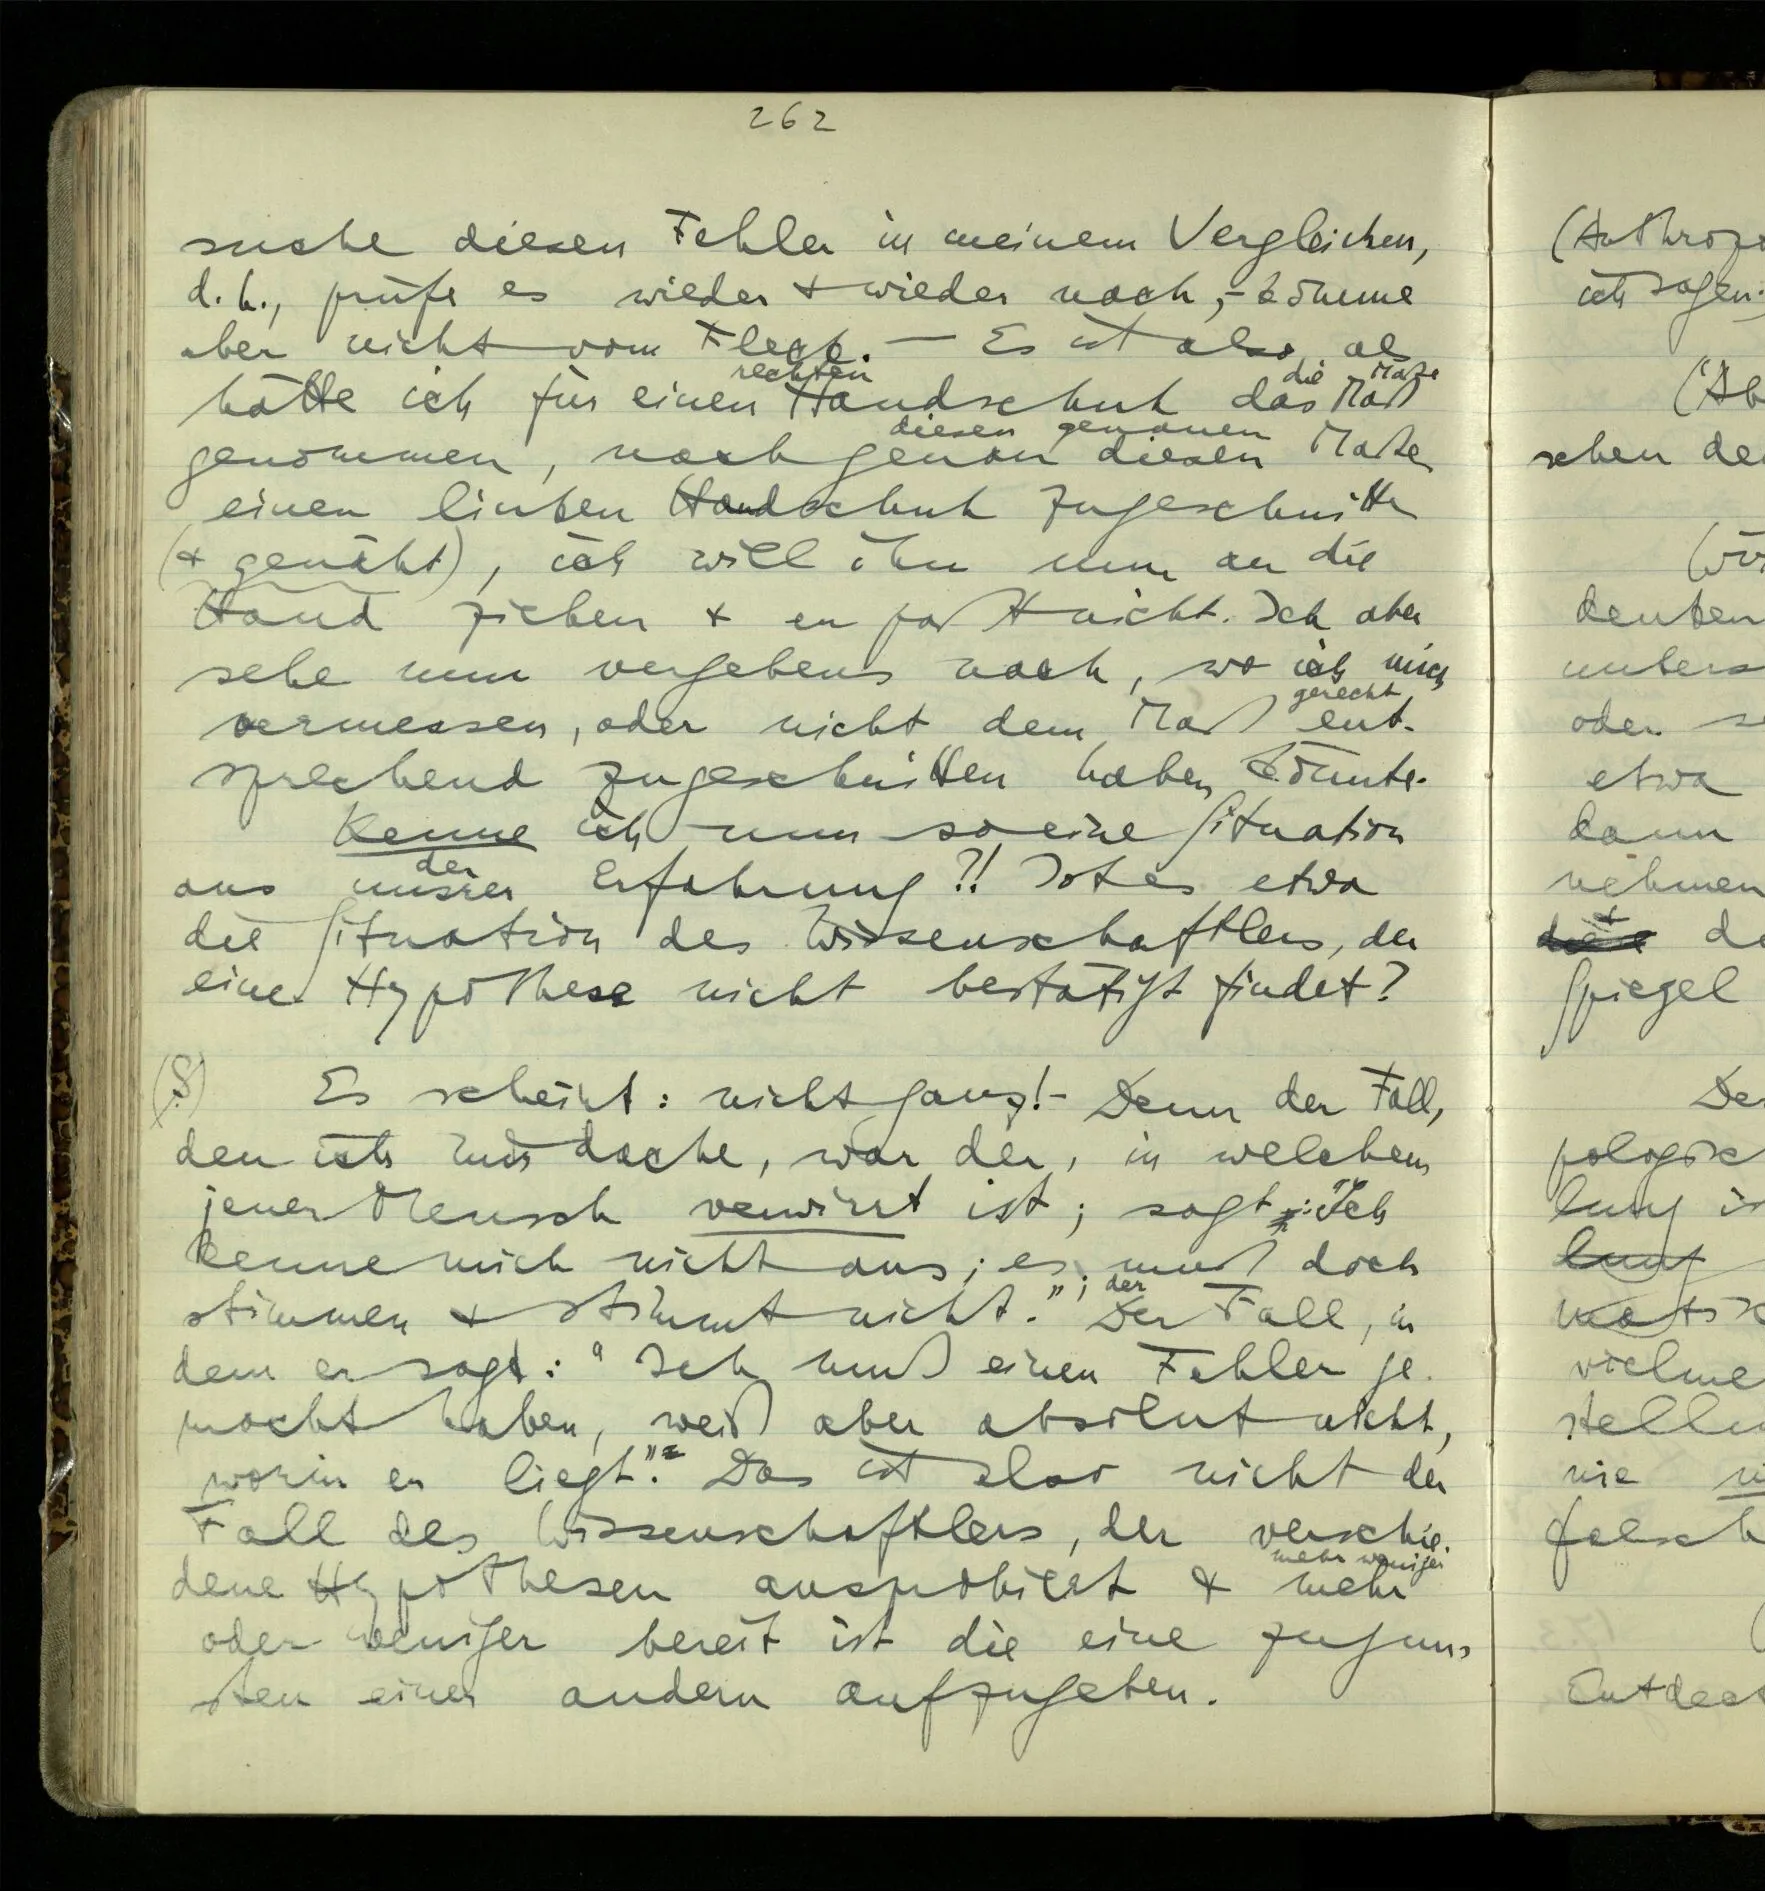 262
suche diesen Fehler in meinem Vergleichen,
d.h., prüfe es wieder & wieder nach, – komme
aber nicht vom Fleck. — Es ist also, als
rechten die Maße
hätte ich für einen Handschuh das Maß
diesen genauen
genommen, nach genau diesen Maßen
einen linken Handschuh zugeschnitten
(& genäht), ich will ihn nun an die
Hand ziehen & er paßt nicht. Ich aber
sehe nun vergebens nach, wo ich mich
gerecht
vermessen, oder nicht dem Maß ent-
sprechend zugeschnitten haben könnte.
Kenne ich nun so eine Situation
der
aus unsrer Erfahrung?! Ist es etwa
die Situation des Wissenschaftlers, der
eine Hypothese nicht bestätigt findet?
(S) Es scheint: nicht ganz! – Denn der Fall,
den ich mir dachte, war der, in welchem
jener Mensch verwirrt ist; sagt: "Ich
kenne mich nicht aus; es muß doch
der
stimmen & stimmt nicht."; Der Fall, in
dem er sagt: "Ich muß einen Fehler ge-
macht haben, weiß aber absolut nicht,
worin er liegt". Das ist also nicht der
Fall des Wissenschaftlers, der verschie-
mehr weniger
dene Hypothesen ausprobiert & mehr
oder weniger bereit ist die eine zuguns-
ten einer andern aufzugeben.
(Anthropo
ich sagen:
("Ab
sehen de
(Wi
denken
unters
oder s
etwa
dann
nehmen
& de
Spiegel
De
pologisc
lung i
lung
matisc
vielme
stellu
nie
falsch
Entdeck